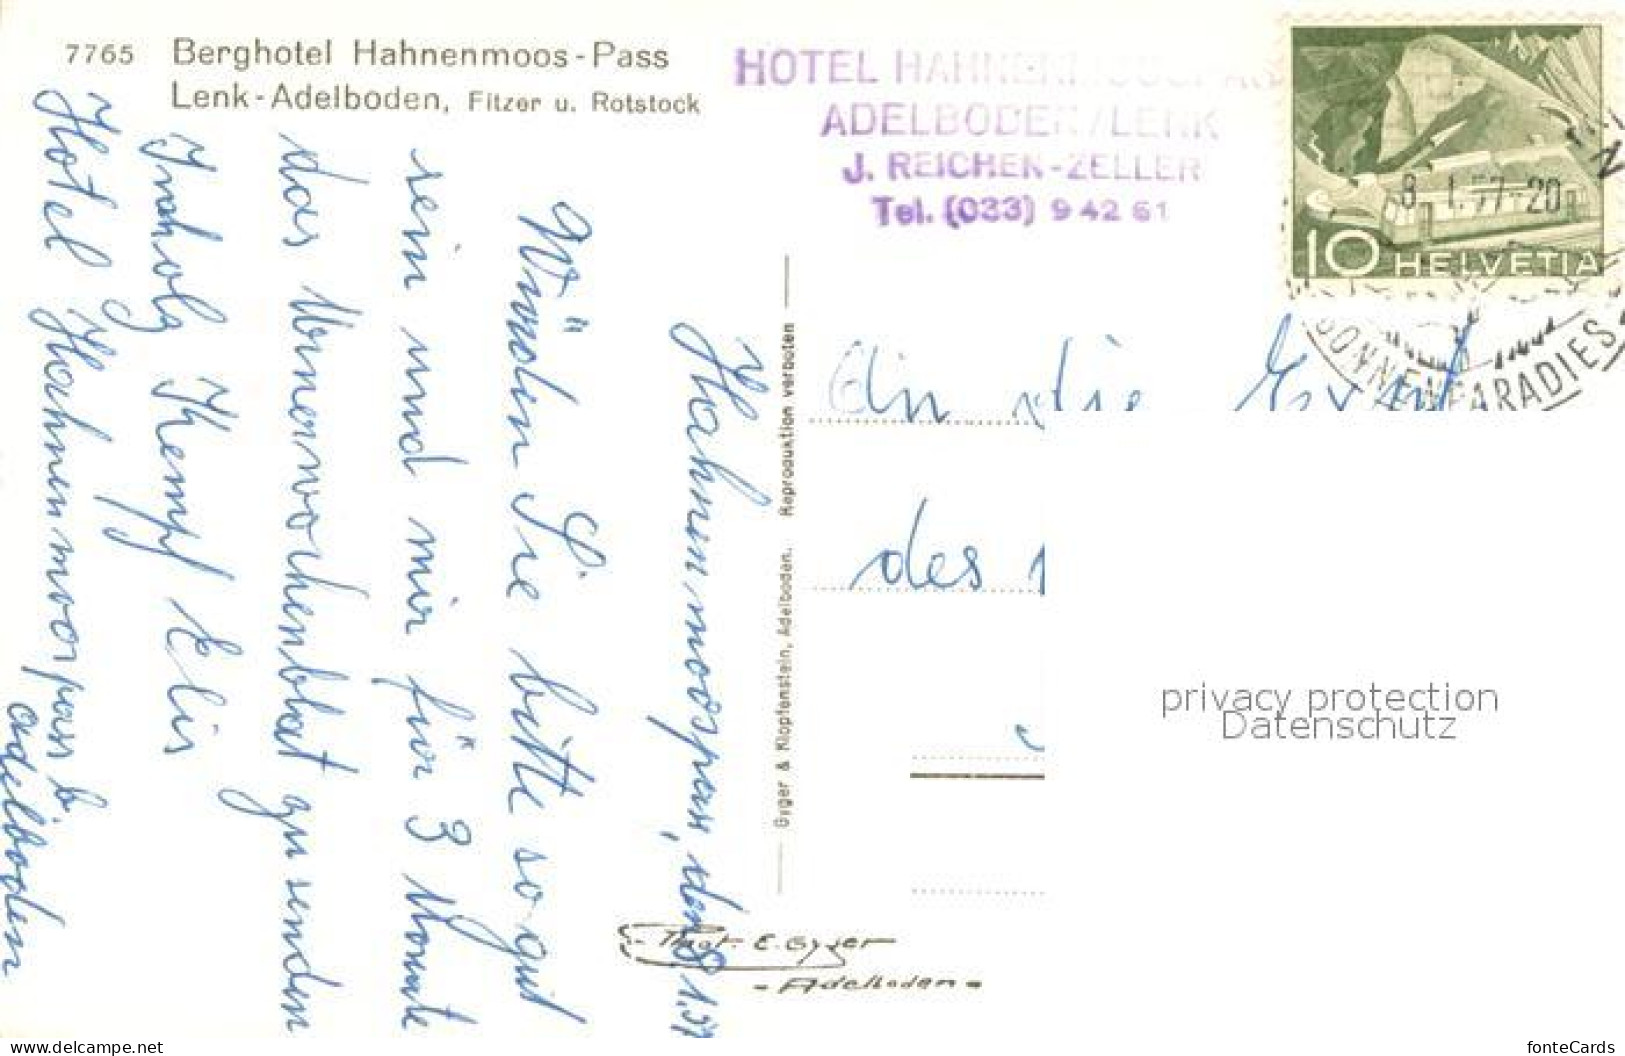 7765 Berghotel Hahnenmoos-Pass
Lenk-Adelboden, Fitzer u. Rotstock
HOTEL HAHNENMOOSPASS
ADELBODEN/LENK
J. REICHEN-ZELLER
Tel. (033) 9 42 61
8. I. 57-20
10 HELVETIA
SONNENPARADIES
Hahnenmoospass, den 8.1.57
Würden Sie bitte so gut
sein und mir für 3 Monate
das Urnerwochenblat zu senden
Imholz Kempf Elis
Hotel Hahnenmoospass b.
Adelboden
Gyger & Klopfenstein, Adelboden. Reproduktion verboten
An die
des
privacy protection
Datenschutz
Phot. E. Gyger
- Adelboden -
www.delcampe.net
fonteCards